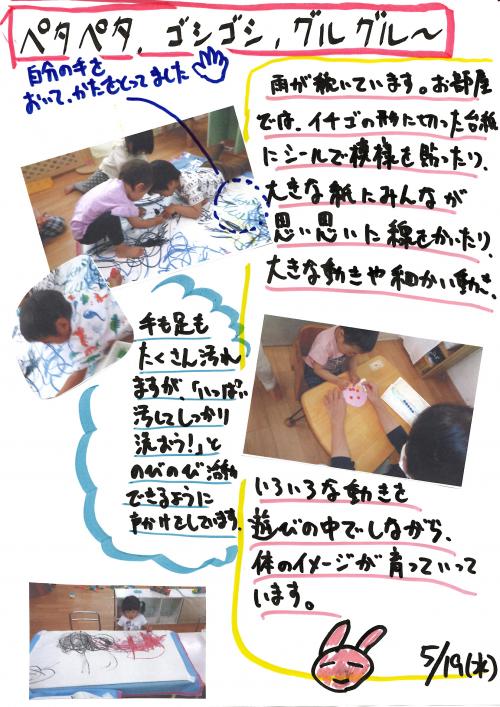 ペタペタ、ゴシゴシ、グルグル～
自分の手を
おいて、かたをとってました
雨が続いています。お部屋
では、イチゴの形に切った台紙
にシールで模様を貼ったり、
大きな紙にみんなが
思い思いに線をかいたり、
大きな動きや細かい動き、
手も足も
たくさん汚れ
ますが、「いっぱい
汚してしっかり
洗おう！」と
のびのび活動
できるように
声かけをしています。
いろいろな動きを
遊びの中でしながら、
体のイメージが育っていって
います。
5/19(水)